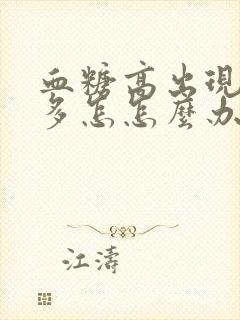 血糖高出現
多怎怎麼办
江濤